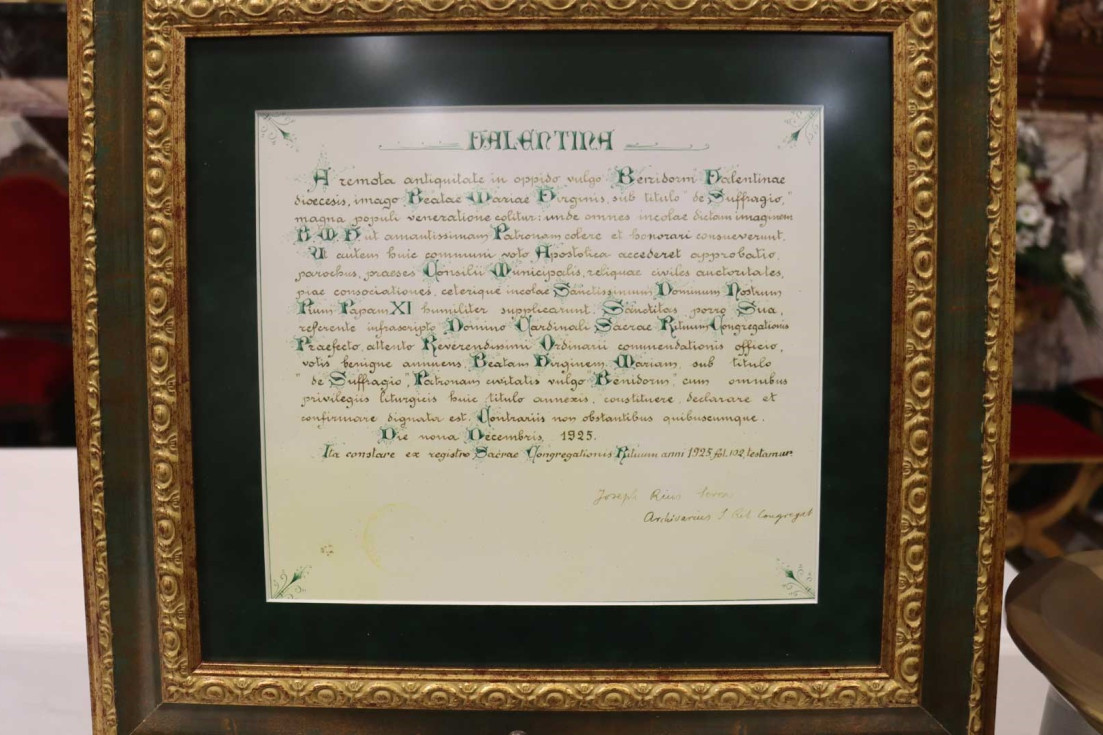 VALENTINA
A remota antiquitate in oppido vulgo Benidorm Valentinae
dioecesis, imago Beatae Mariae Virginis, sub titulo "de Suffragio,"
magna populi veneratione colitur; unde omnes incolae dictam imaginem
B. M. V. ut amantissimam Patronam colere et honorari consueverunt.
Ut autem huic communi voto Apostolica accederet approbatio,
parochus, praeses Consilii Municipalis, reliquae civiles auctoritates,
piae consociationes, ceterique incolae Sanctissimum Dominum Nostrum
Pium Papam XI humiliter supplicarunt. Sanctitas porro Sua,
referente infrascripto Domino Cardinali Sacrae Rituum Congregationis
Praefecto, attento Reverendissimi Ordinarii commendationis officio,
votis benigne annuens, Beatam Virginem Mariam, sub titulo
"de Suffragio", Patronam civitatis vulgo "Benidorm, cum omnibus
privilegiis liturgicis huic titulo annexis, constituere, declarare et
confirmare dignata est. Contrariis non obstantibus quibuscumque.
Die nona Decembris, 1925.
Ita constare ex registro Sacrae Congregationis Rituum anni 1925, fol. 132, testamur.
Joseph Rius Serra
Archivarius S. Rit. Congregat